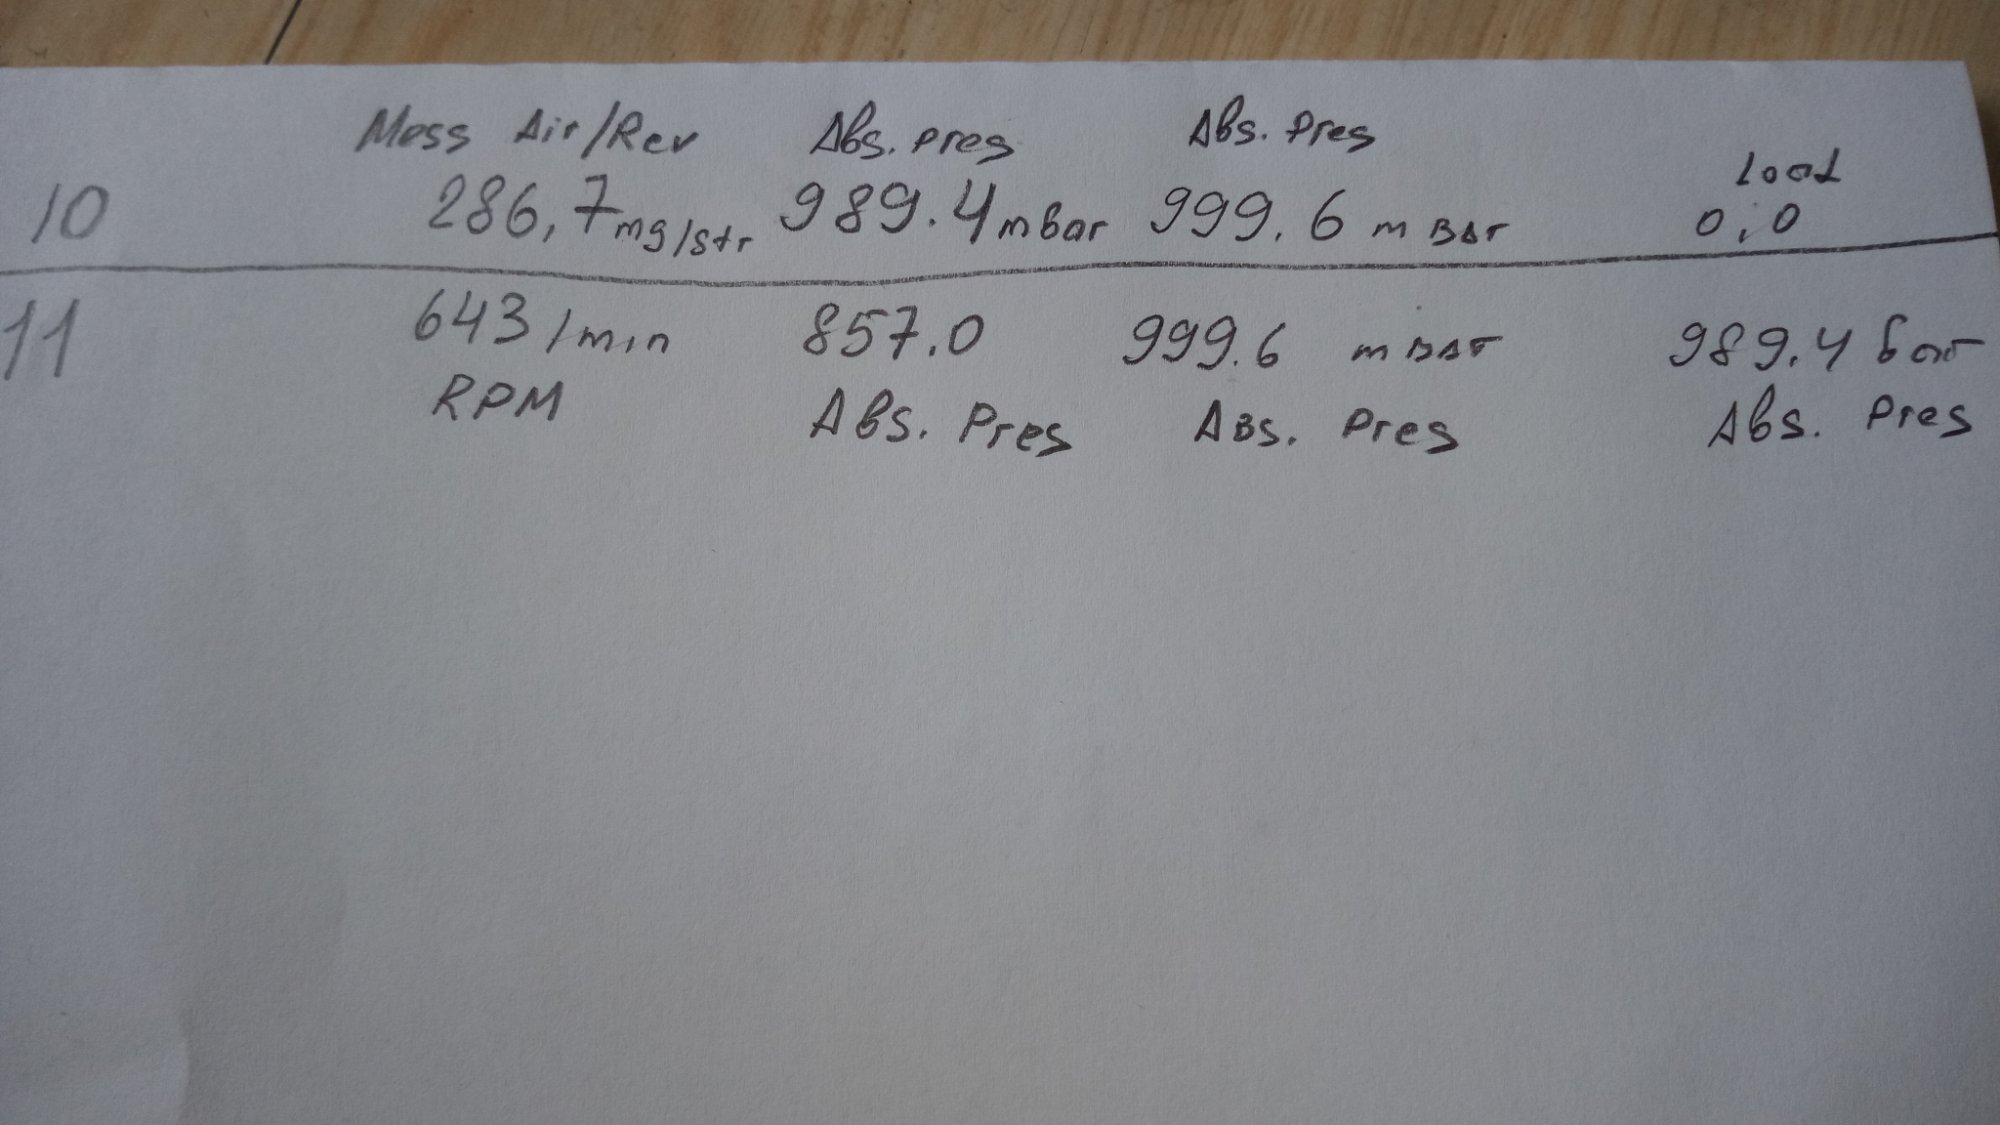 Mass Air/Rev Abs. pres Abs. Pres Load
10 286,7 mg/str 989.4 mbar 999.6 mBar 0,0
11 643 /min 857.0 999.6 mBar 989.4 бar
RPM Abs. Pres Abs. Pres Abs. Pres